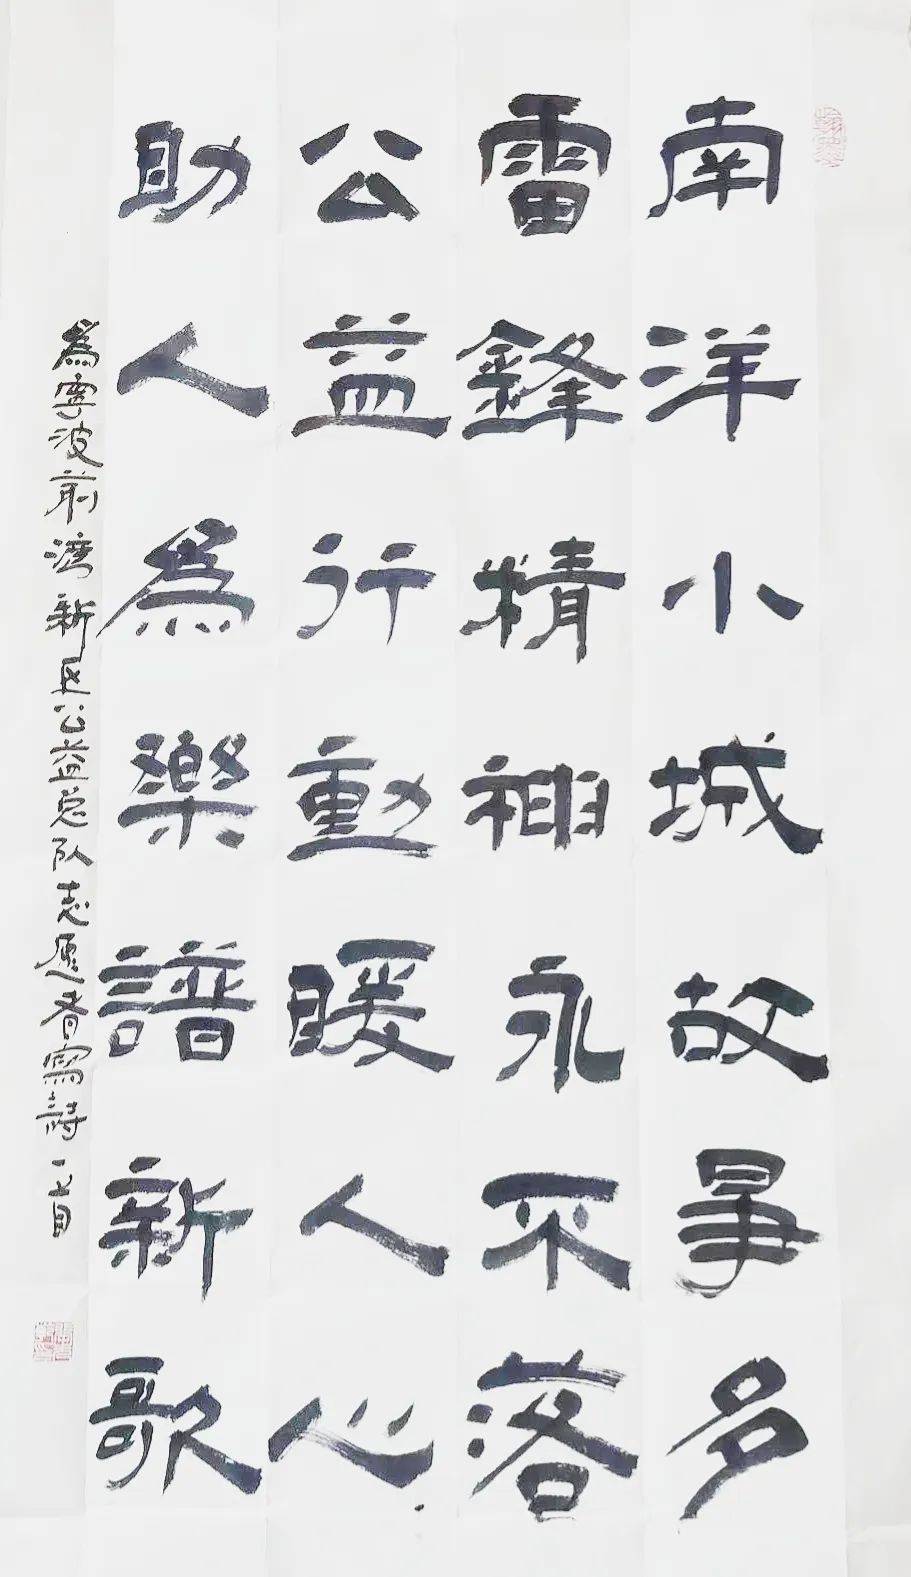 南洋小城故事多
雷鋒精神永不落
公益行動暖人心
助人為樂譜新歌
為寧波前灣新区公益总队志愿者寫詩一首